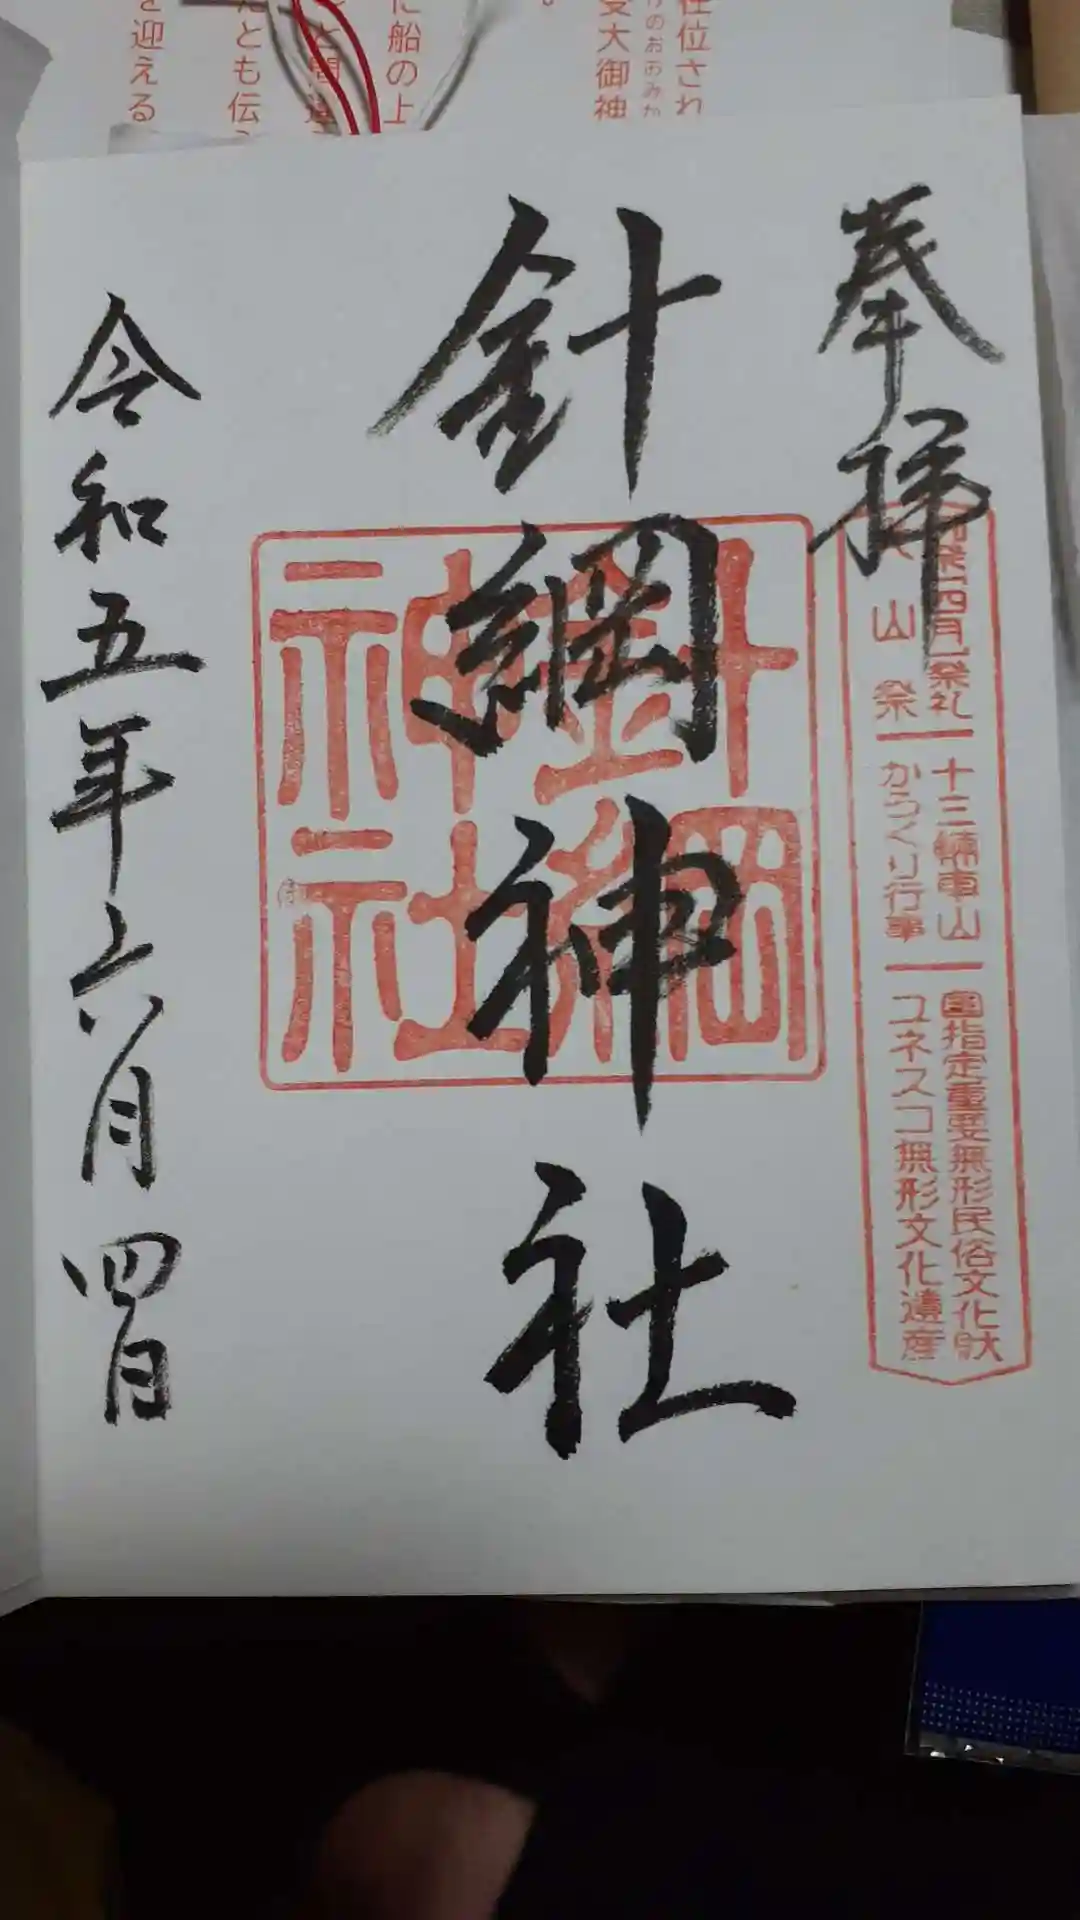 在位され
けのおおみか
受大御神
。
に船の上
たとも伝
を迎える
奉拝
犬山祭
四月 祭礼
十三輛車山
からくり行事
国指定重要無形民俗文化財
ユネスコ無形文化遺産
針綱神社
針綱
神社
令和五年六月四日